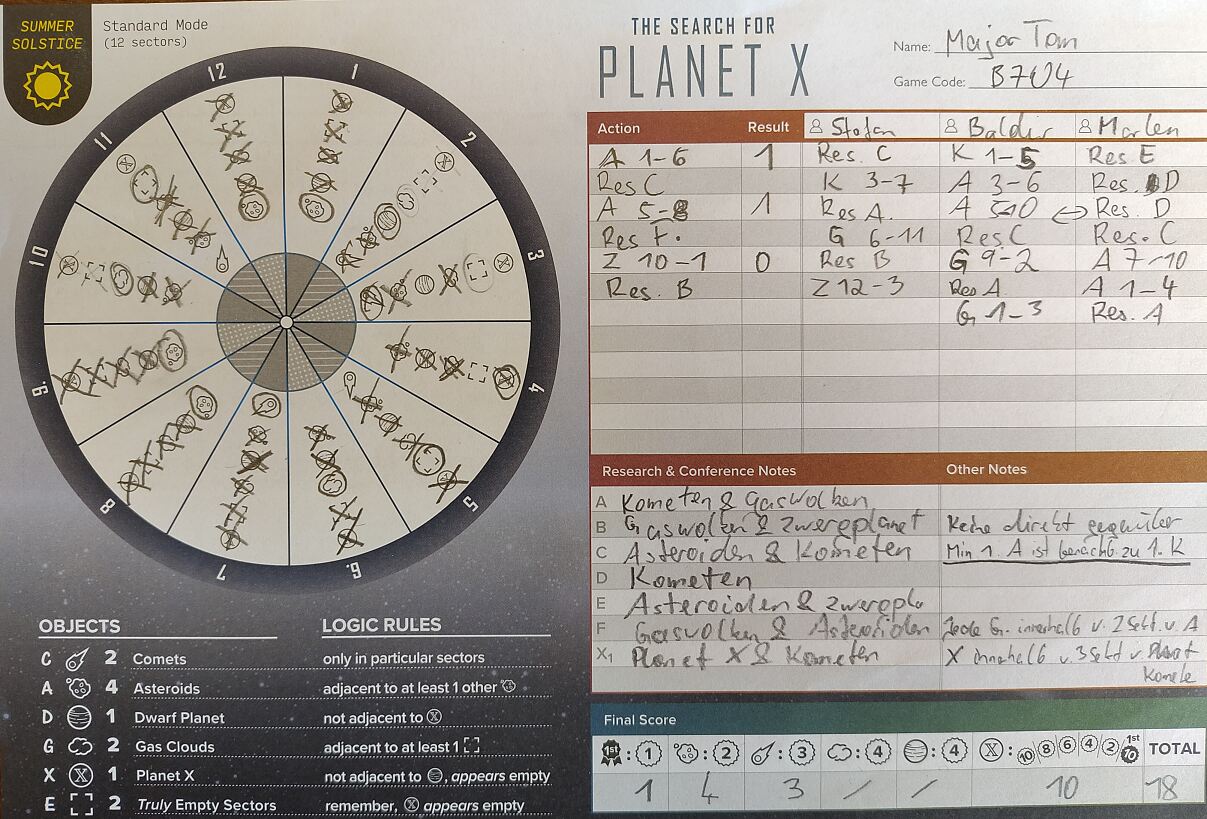 SUMMER
SOLSTICE
Standard Mode
(12 sectors)
THE SEARCH FOR
PLANET X
Name: Major Tom
Game Code: B7U4
12
1
2
3
4
5
6.
7
8
9.
10
11
Action Result Stefan Baldur Marlen
A 1-6 1 Res. C K 1-5 Res E
Res C K 3-7 A 3-6 Res. D
A 5-8 1 Res A. A 5-10 ↔ Res. D
Res F. G 6-11 Res C Res. C
Z 10-1 0 Res B G 9-2 A 7-10
Res. B Z 12-3 Res A A 1-4
G 1-3 Res. A
Research & Conference Notes Other Notes
A Kometen & Gaswolken
B Gaswolken & Zwergplanet Keine direkt gegenüber
C Asteroiden & Kometen Min 1. A ist benachb. zu 1. K
D Kometen
E Asteroiden & Zwergpla
F Gaswolken & Asteroiden Jede G. innerhalb v. 2 Sekt. v. A
X1 Planet X & Kometen X innerhalb v. 3 Sekt v.
Komete
OBJECTS LOGIC RULES
C 2 Comets only in particular sectors
A 4 Asteroids adjacent to at least 1 other
D 1 Dwarf Planet not adjacent to X
G 2 Gas Clouds adjacent to at least 1
X 1 Planet X not adjacent to , appears empty
E 2 Truly Empty Sectors remember, X appears empty
Final Score
1st : 1 : 2 : 3 : 4 : 4 X : 10 8 6 4 2 1st 10 TOTAL
1 4 3 / / 10 18